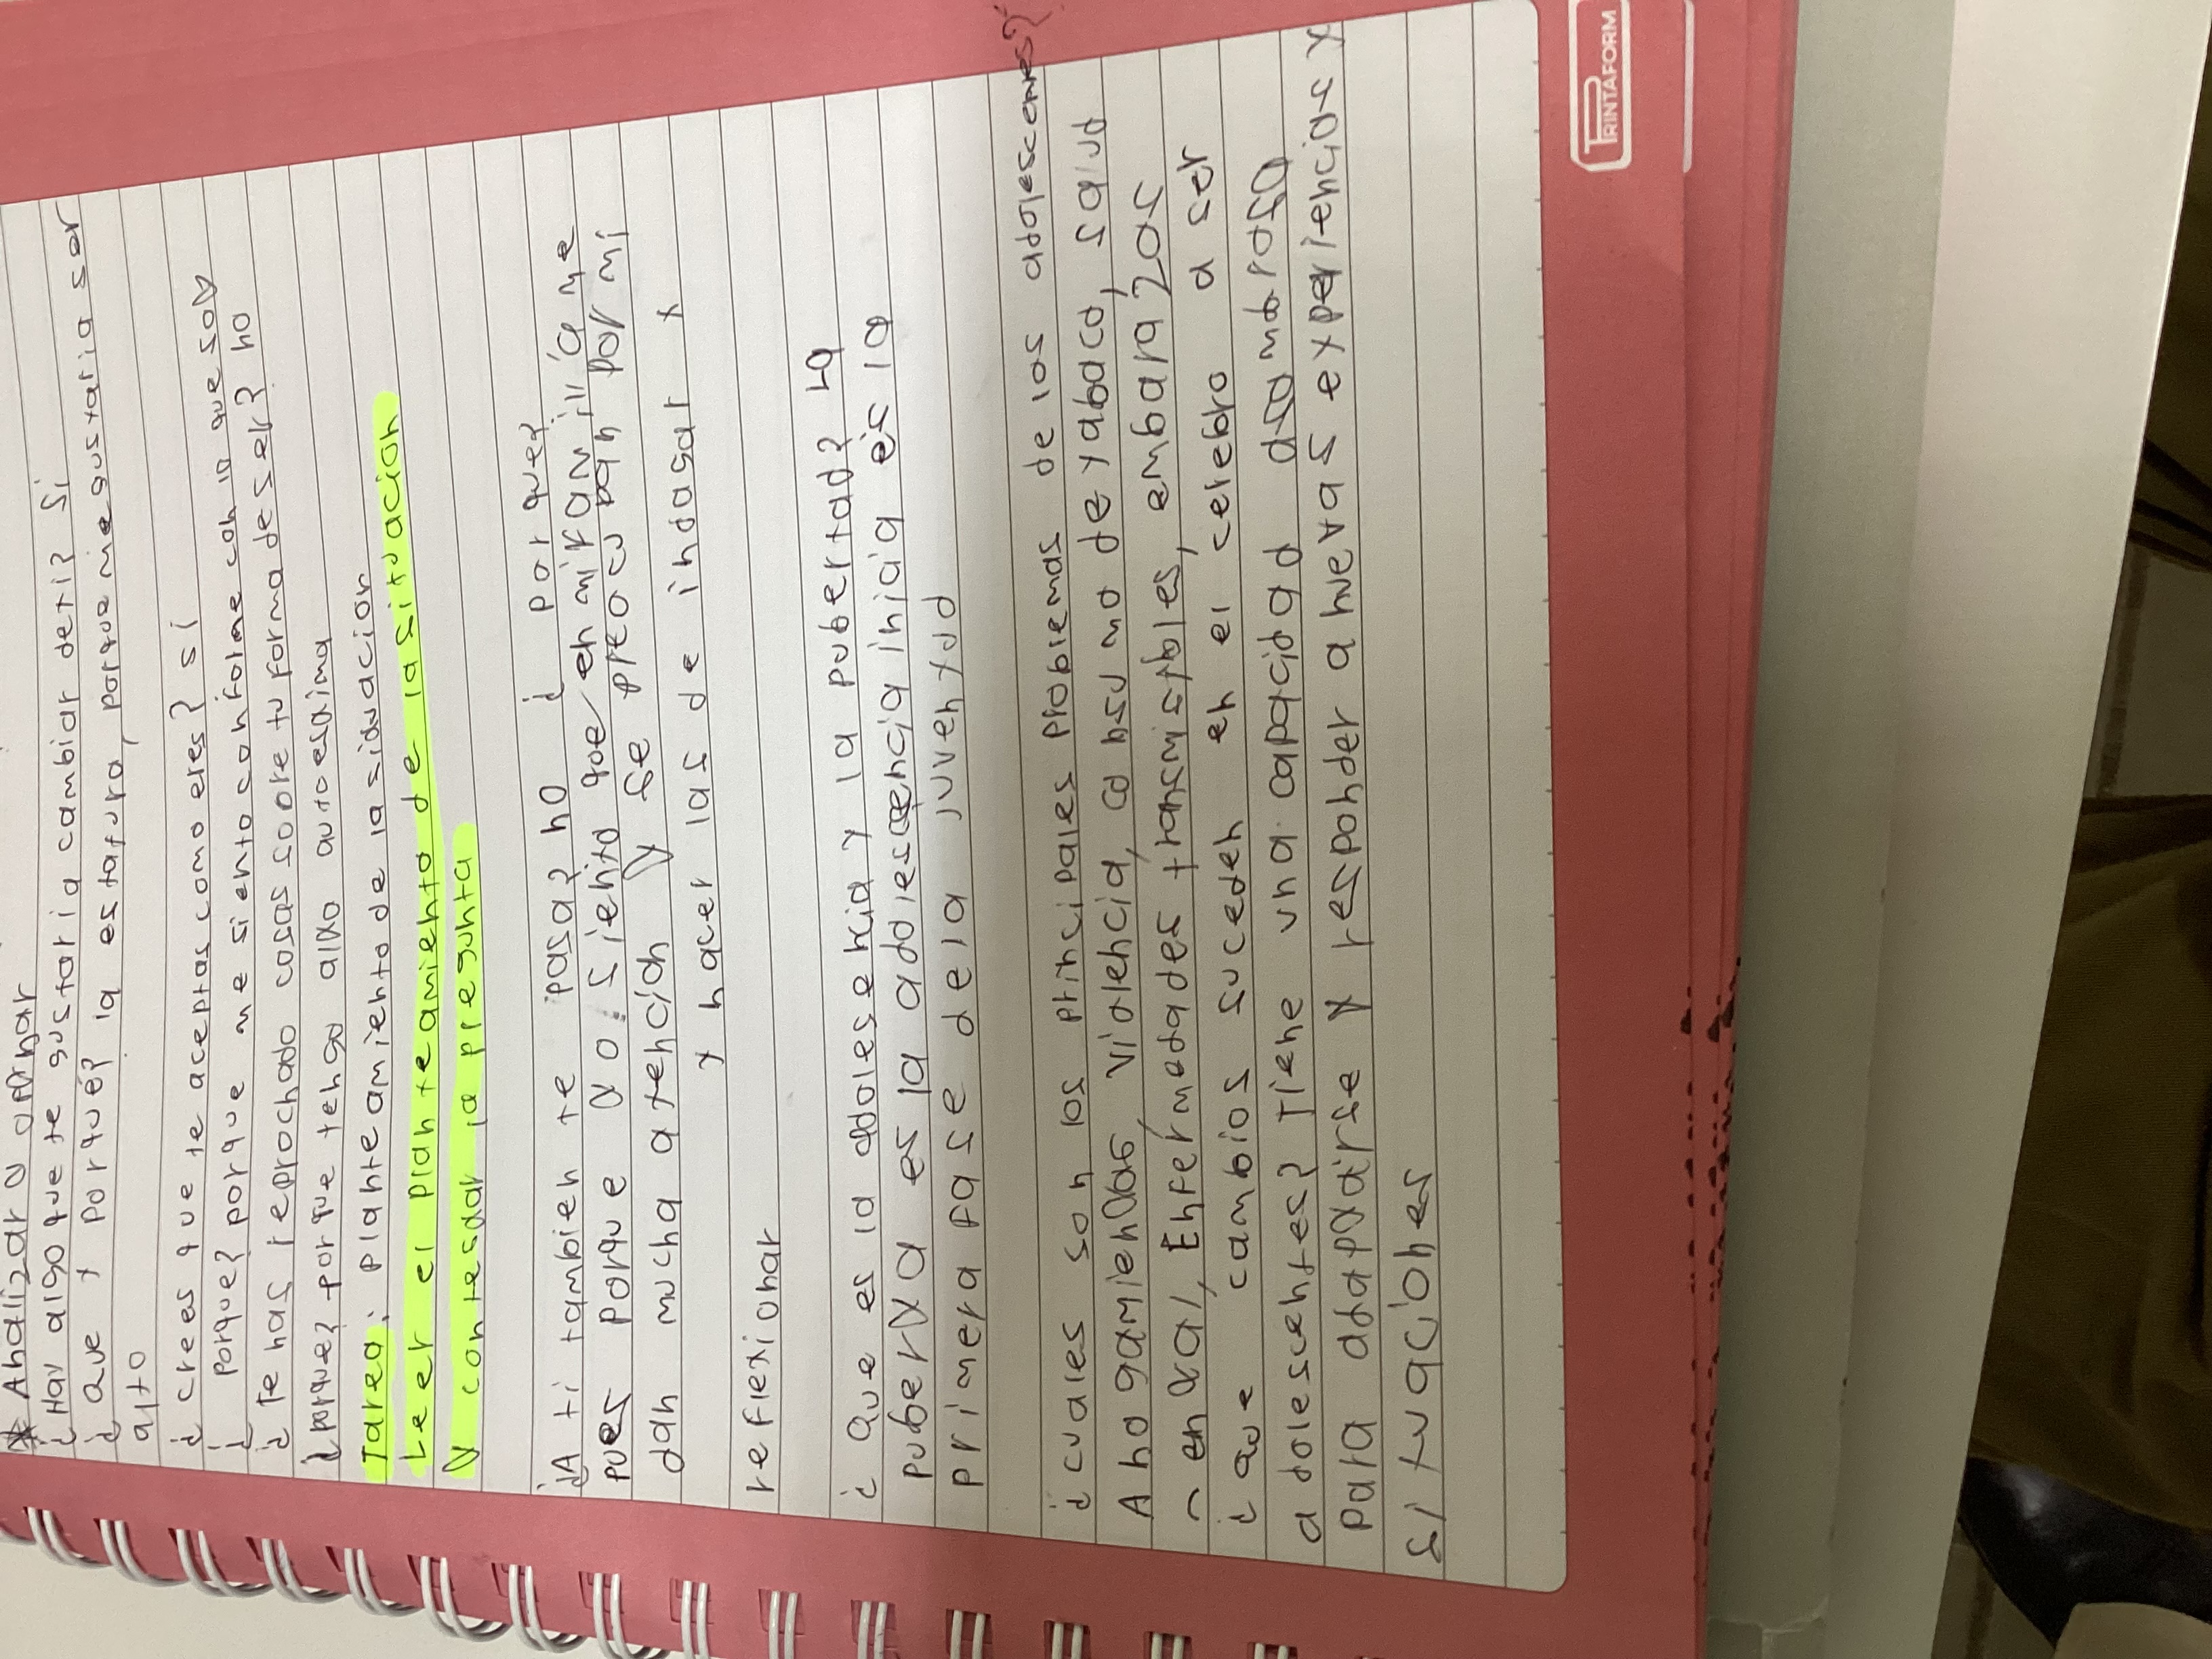 * Analizar y opinar
¿Hay algo que te gustaria cambiar de ti? Si
¿Que y porqué? la estatura, porque me gustaria ser
alto
¿crees que te aceptas como eres? sí
¿porque? porque me siento conforme con lo que soy
¿Te has reprochado cosas sobre tu forma de ser? no
¿porque? porque tengo alta autoestima
Tarea: planteamiento de la situacion
Leer el planteamiento de la situacion
y contestar la pregunta
¿A ti tambien te pasa? no ¿por que?
pues porque yo siento que en mi familia me
dan mucha atención y se preocupan por mi
x hacer las de indagar x
reflexionar
¿Que es la adolesencia y la pubertad? La
puberta es la adolescencia inicia es la
primera fase de la juventud
¿cuales son los principales problemas de los adolescentes?
Ahogamientos violencia, consumo de tabaco, salud
mental, Enfermedades transmisibles, embarazos
¿que cambios suceden en el cerebro a ser
adolescentes? Tiene una capacidad asombrosa
para adaptarse y responder a nuevas experiencias y
situaciones
PRINTAFORM